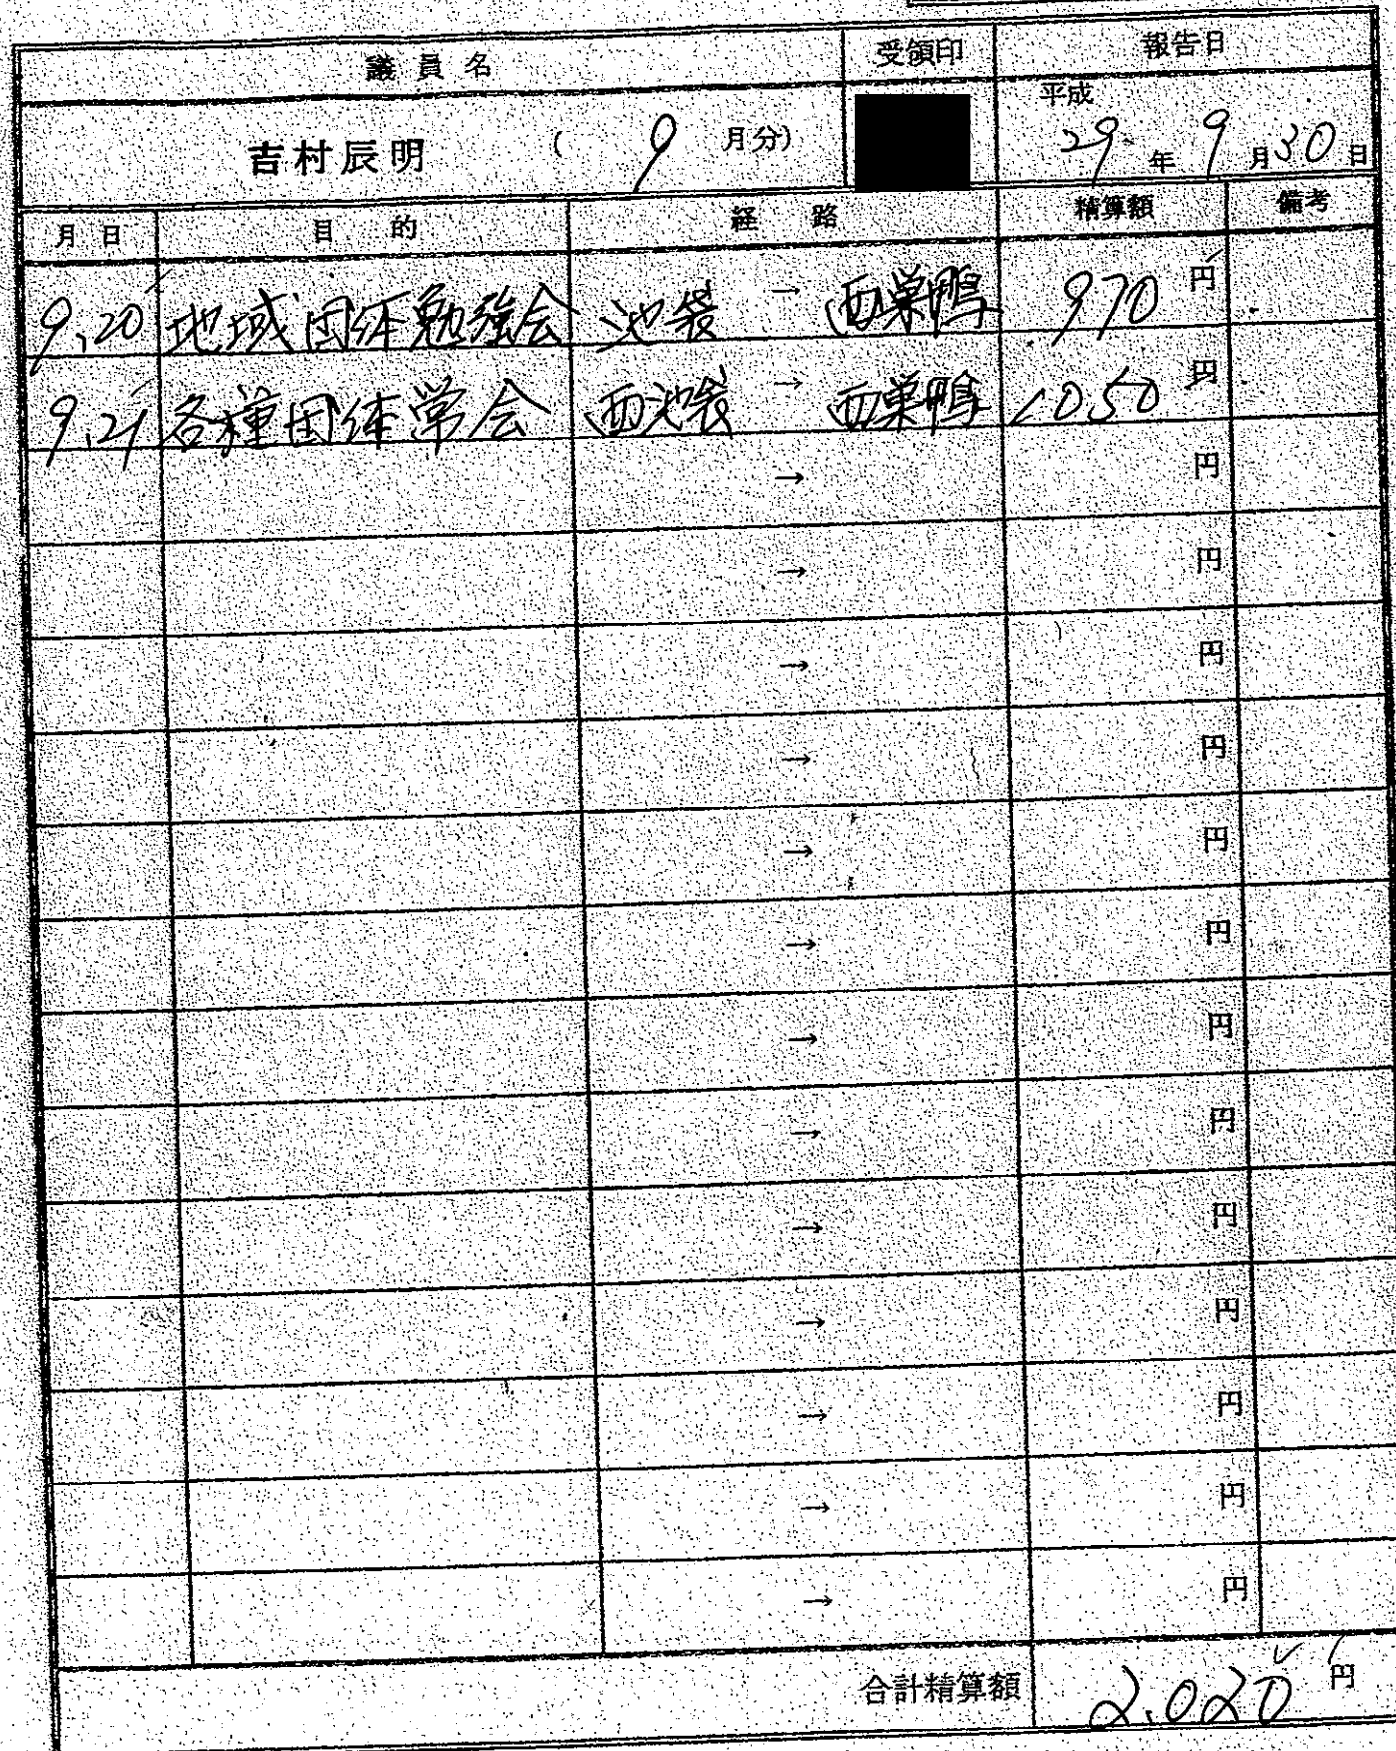 議員名 受領印 報告日
吉村辰明 ( 9 月分) 平成 29年 9月30日
月日 目的 経路 精算額 備考
9.20 地域団体勉強会 池袋 → 西巣鴨 970 円
9.21 各種団体常会 西池袋 → 西巣鴨 1050 円
→ 円
→ 円
→ 円
→ 円
→ 円
→ 円
→ 円
→ 円
→ 円
→ 円
→ 円
→ 円
→ 円
合計精算額 2.020 円